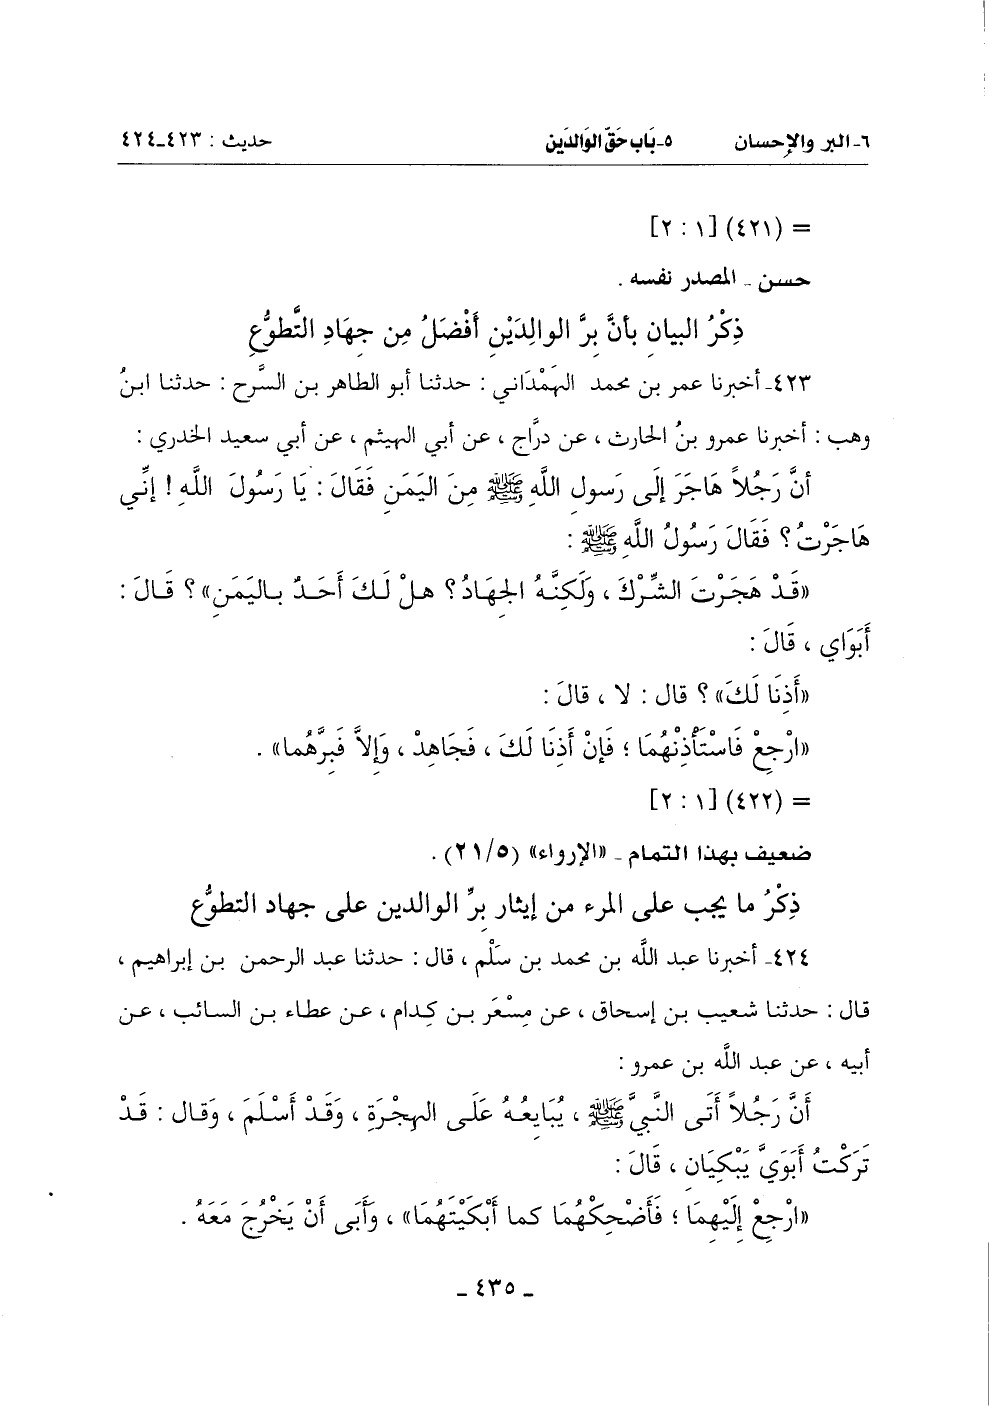 ٦ـ البر والإحسان ٥ـ بَاب حَقّ الوَالدَين حديث : ٤٢٣ـ٤٢٤
= (٤٢١) [١ : ٢]
حسن ـ المصدر نفسه .
ذِكْرُ البيانِ بأنَّ بِرَّ الوالِدَيْنِ أَفْضَلُ مِن جِهَادِ التَّطوُّعِ
٤٢٣ـ أخبرنا عمر بن محمد الهَمْدَاني : حدثنا أبو الطاهر بن السَّرح : حدثنا ابنُ
وهب : أخبرنا عمرو بنُ الحارث ، عن درَّاج ، عن أبي الهيثم ، عن أبي سعيد الخدري :
أنَّ رَجُلاً هَاجَرَ إِلَى رَسولِ اللَّهِ ﷺ مِنَ اليَمَنِ فَقَالَ : يَا رَسُولَ اللَّهِ ! إنِّي
هَاجَرْتُ؟ فَقَالَ رَسُولُ اللَّهِ ﷺ :
«قَدْ هَجَرْتَ الشِّرْكَ ، وَلَكِنَّهُ الجِهَادُ؟ هلْ لَكَ أَحَدٌ بـاليَمَنِ»؟ قَـالَ :
أَبَوَاي ، قَالَ :
«أَذِنَا لَكَ»؟ قال : لا ، قالَ :
«ارْجِعْ فَاسْتَأْذِنْهُمَا ؛ فَإنْ أَذِنَا لَكَ ، فَجَاهِدْ ، وَإلاَّ فَبِرَّهُما» .
= (٤٢٢) [١ : ٢]
ضعيف بهذا التمام ـ «الإرواء» (٥/ ٢١) .
ذِكْرُ ما يجب على المرء من إيثار بِرِّ الوالدين على جهاد التطوُّع
٤٢٤ـ أخبرنا عبد اللَّه بن محمد بن سَلْم ، قال : حدثنا عبد الرحمن بن إبراهيم ،
قال : حدثنا شعيب بن إسحاق ، عن مِسْعَر بن كِدام ، عن عطاء بن السائب ، عن
أبيه ، عن عبد اللَّه بن عمرو :
أَنَّ رَجُلاً أَتَى النَّبِيَّ ﷺ ، يُبَايِعُهُ عَلَى الهِجْرَةِ ، وَقَدْ أَسْلَمَ ، وَقال : قَـدْ
تَرَكْتُ أَبَوَيَّ يَبْكِيَان ، قَالَ :
«ارْجِعْ إِلَيْهِمَا ؛ فَأَضْحِكْهُمَا كما أَبْكَيْتَهُمَا» ، وَأَبَى أَنْ يَخْرُجَ مَعَهُ .
ـ ٤٣٥ ـ